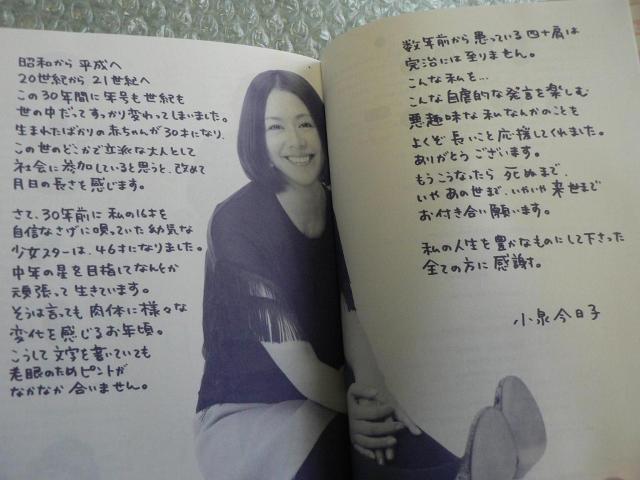 昭和から 平成へ
20世紀から 21世紀へ
この30年間に年号も世紀も
世の中だってすっかり変わってしまいました。
生まれたばかりの赤ちゃんが30才になり、
この世のどこかで立派な大人として
社会に参加していると思うと、改めて
月日の長さを感じます。
さて、30年前に「私の16才」を
自信なさげに唄っていた幼気な
少女スターは、46才になりました。
中年の星を目指してなんとか
頑張って生きています。
そうは言っても肉体に様々な
変化を感じるお年頃。
こうして文字を書いていても
老眼のためピントが
なかなか合いません。
数年前から患っている四十肩は
完治には至りません。
こんな私を…
こんな自虐的な発言を楽しむ
悪趣味な私なんかのことを
よくぞ長いこと応援してくれました。
ありがとうございます。
もうこうなったら死ぬまで、
いやあの世まで、いやいや来世まで
お付き合い願います。
私の人生を豊かなものにして下さった
全ての方に感謝す。
小泉今日子